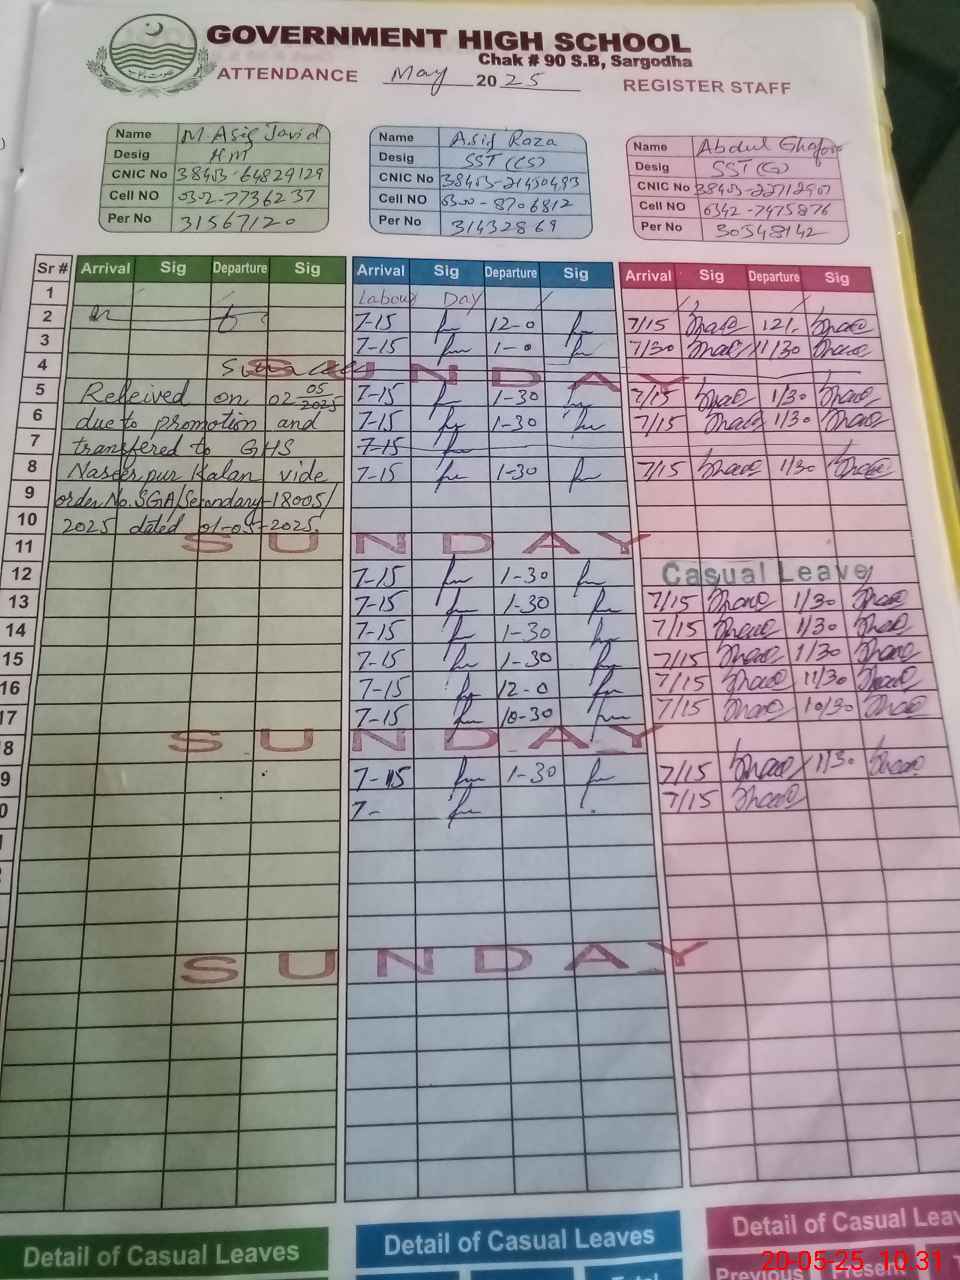 GOVERNMENT HIGH SCHOOL
Chak # 90 S.B, Sargodha
ATTENDANCE May 2025 REGISTER STAFF
Name M. Asif Javid
Desig HM
CNIC No 38403-64829129
Cell NO
Per No 31567120
Name Asif Raza
Desig SST (CS)
CNIC No
Cell NO 0300-8706812
Per No 31432869
Name Abdul Ghafoor
Desig SST(G)
CNIC No
Cell NO 0342-7475876
Per No 30348142
Sr # Arrival Sig Departure Sig Arrival Sig Departure Sig Arrival Sig Departure Sig
1 Labour Day
2 7-15 12-0 7/15 12/-
3 7-15 1-0 7/30 11/30
4 SUNDAY
5 Releived on 02-05-2025 7-15 1-30 7/15 1/30
6 due to promotion and 7-15 1-30 7/15 1/30
7 transfered to GHS 7-15
8 Naseer pur Kalan vide 7-15 1-30 7/15 1/30
9 order No. SGA/Secondary-18005/
10 2025 dated 01-05-2025.
11 SUNDAY
12 7-15 1-30 Casual Leave
13 7-15 1-30 7/15 1/30
14 7-15 1-30 7/15 1/30
15 7-15 1-30 7/15 1/30
16 7-15 12-0 7/15 11/30
17 7-15 10-30 7/15 10/30
8 SUNDAY
9 7-15 1-30 7/15 1/30
0 7- 7/15
SUNDAY
Detail of Casual Leaves Detail of Casual Leaves Detail of Casual Leav
Total Previous Present
20-05-25 10:31